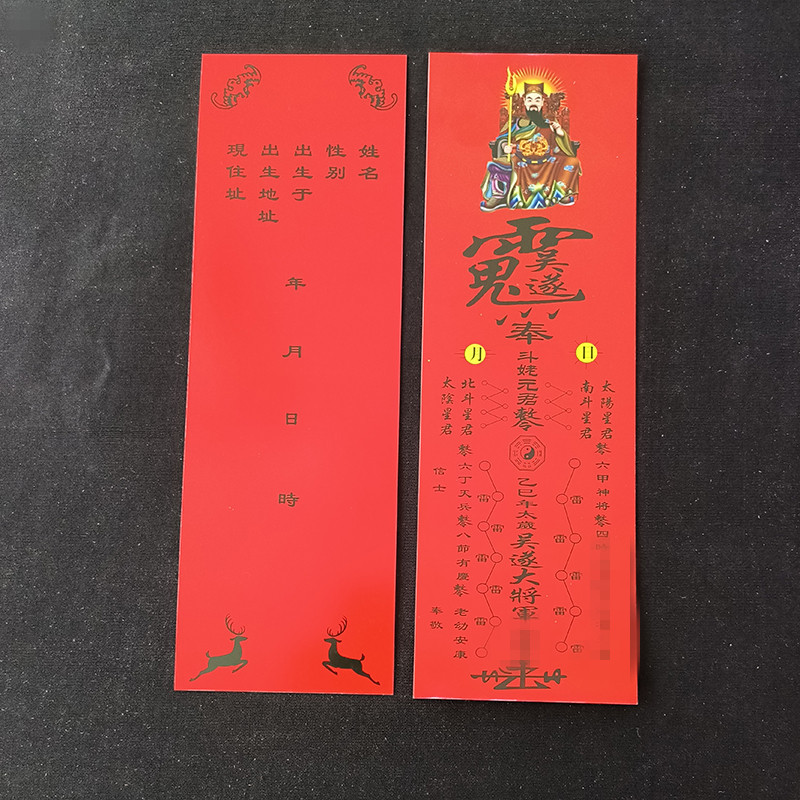 姓名
性别
出生于
出生地址
現住址
年
月
日
時
吴遂
奉
日
月
斗姥元君
太陽星君
南斗星君
北斗星君
太陰星君
六甲神将
四
六丁天兵
八節有慶
老幼安康
信士
奉敬
乙巳年太歲吴遂大將軍
雷
雷
雷
雷
雷
雷
雷
雷
雷
雷